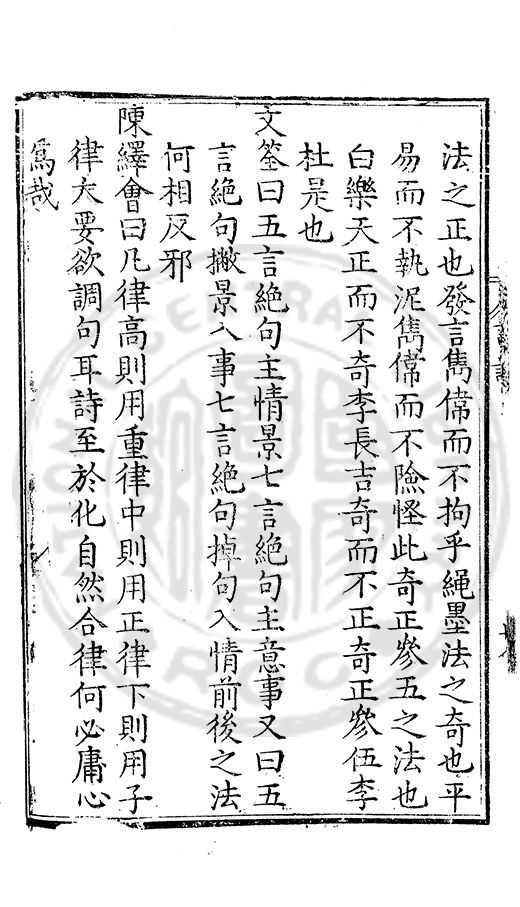 法之正也發言雋偉而不拘乎繩墨法之奇也平
易而不執泥雋偉而不險怪此奇正參五之法也
白樂天正而不奇李長吉奇而不正奇正參伍李
杜是也
文筌曰五言絶句主情景七言絶句主意事又曰五
言絶句撇景入事七言絶句掉句入情前後之法
何相反邪
陳繹曾曰凡律高則用重律中則用正律下則用子
律大要欲調句耳詩至於化自然合律何必庸心
爲哉